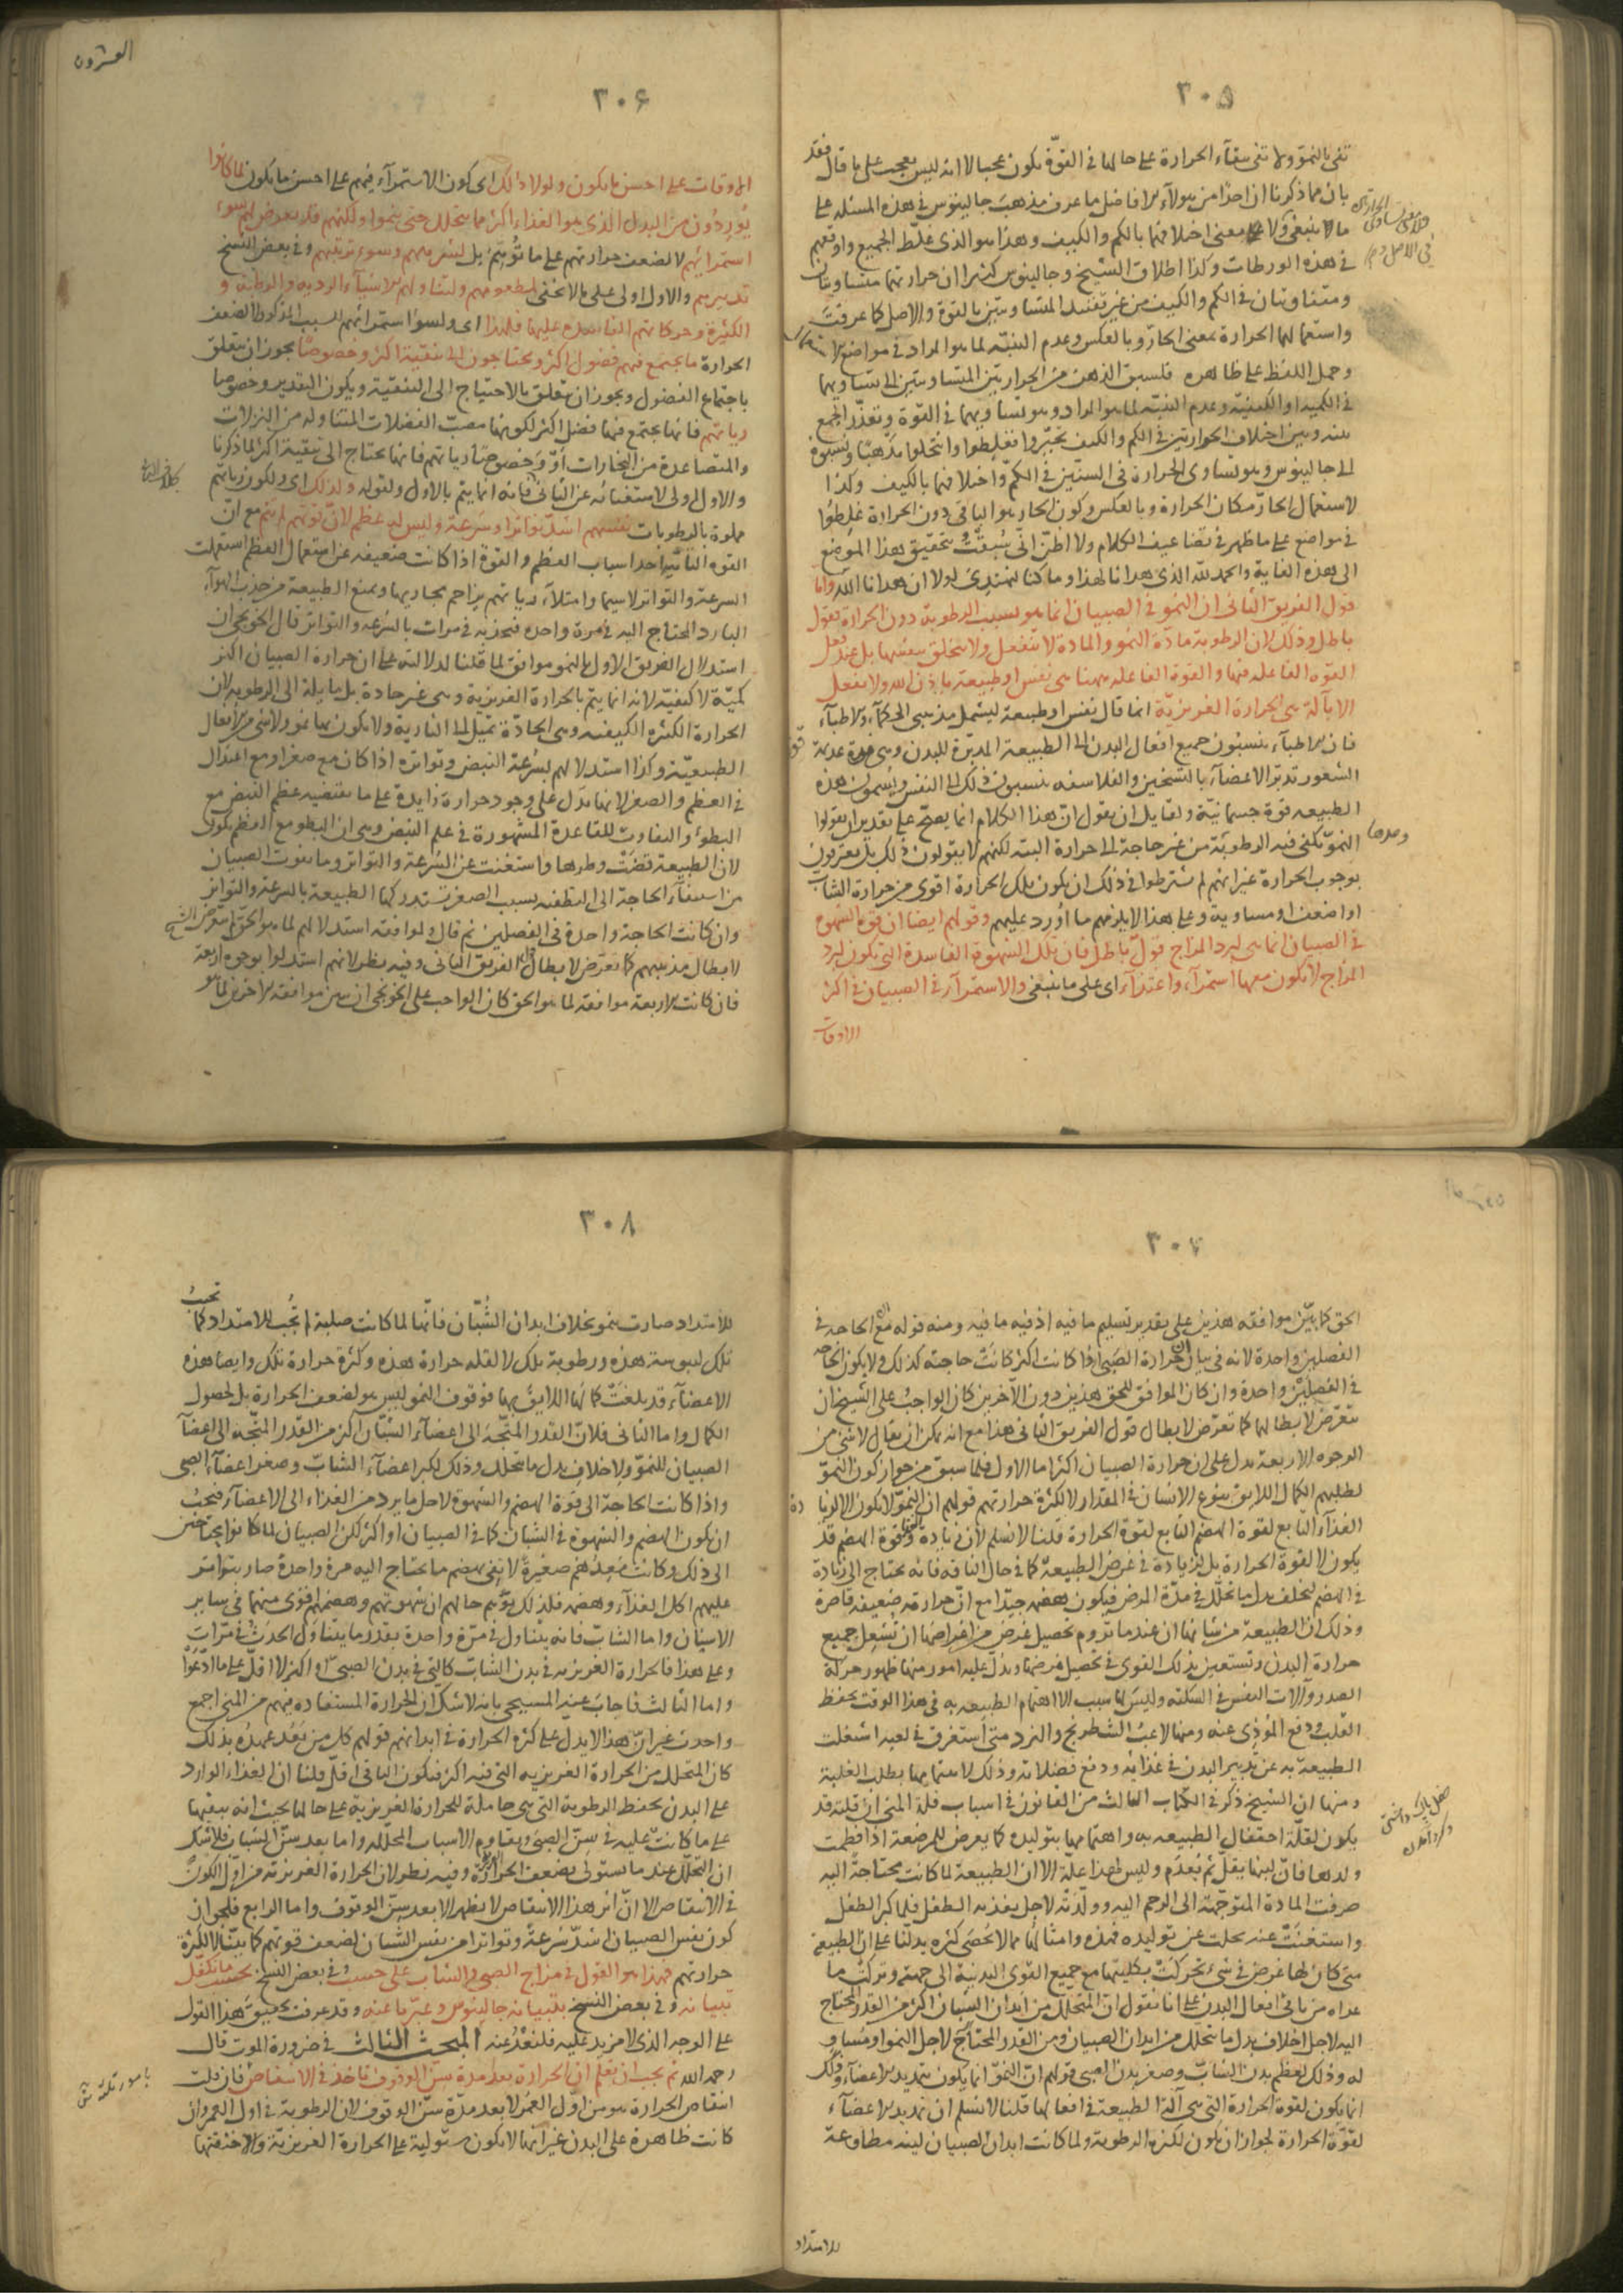 ٣٠٥
تفى بالنمو ولا تفى ببقآء الحرارة على حالها فى القوة يكون عجبا الا انه ليس بعجب على ما قال فقد
بان مما ذكرنا ان احدا من هولآء الافاضل ما عرف مذهب جالينوس فى هذه المسئله على
ما ينبغى ولا معنى اختلافهما بالكم والكيف وهذا هو الذى غلّط الجميع واوقعهم
فى هذه الورطات وكذا اطلاق الشيخ وجالينوس كثيرا ان حرارتهما متساويتان
ومتفاوتتان فى الكم والكيف من غير تقييد المتساويتين بالقوة والاصل كما عرفت
واستعمالهما الحرارة بمعنى الحارّ وبالعكس وعدم التنبّه لما هو المراد فى مواضع الاستعمال
وحمل اللفظ على ظاهره فلسبق الذهن من الحرارتين المتساويتين الى تساويهما
فى الكمية او الكيفيّة وعدم التنبّه لما هو المراد وهو تساويهما فى القوة وتعذّر الجمع
بينه وبين اختلاف الحرارتين فى الكم والكيف تحيّروا فغلطوا وانتحلوا مذهبًا ونسبوه
الى جالينوس وهو تساوى الحرارة فى السنّين فى الكمّ واختلافهما بالكيف وكذا
لاستعمال الحارّ مكان الحرارة وبالعكس وكون الحار هو الباقى دون الحرارة غلطُوا
فى مواضع على ما ظهر فى تضاعيف الكلام ولا اظنّ انّى سُبقتُ بتحقيق هذا الموضع
الى هذه الغاية والحمد لله الذى هدانا لهذا وما كنا لنهتدى لولا ان هدانا الله واما
قول الفريق الثانى ان النمو فى الصبيان انما هو بسبب الرطوبة دون الحرارة فقول
باطل وذلك لان الرطوبة مادّة النمو والمادة لا تنفعل ولا تتخلق بنفسها بل عند فعل
القوه الفاعله فيها والقوة الفاعله ههنا هى نفس او طبيعة باذن الله ولا يفعل
الا بآلة هى الحرارة الغريزيّة انما قال نفس او طبيعة ليشمل مذهبى الحكمآء والاطبآء
فان الاطبآء ينسبون جميع افعال البدن الى الطبيعة المدبّرة للبدن وهى قوة عديمة
الشعور تدبّر الاعضآء بالتسخين والفلاسفه ينسبون ذلك الى النفس ويسمون هذه
الطبيعه قوة جسمانيّة ولقايل ان يقول انّ هذا الكلام انما يصحّ على تقدير ان يقولوا
النموّ يكفى فيه الرطوبة من غير حاجة الى حرارة البته لكنهم لا يقولون ذلك بل يعترفون
بوجوب الحرارة غير انهم لم يشترطوا فى ذلك ان يكون تلك الحرارة اقوى من حرارة الشاب
او اضعف او مساوية وعلى هذا لا يلزمهم ما اُورد عليهم وقولهم ايضا ان قوة الشهوة
فى الصبيان انما هى لبرد المزاج قولٌ باطل فان تلك الشهوة الفاسدة التى يكون لبرد
المزاج لا يكون معها استمرآء واغتذآء اى على ما ينبغى والاستمرآء فى الصبيان فى اكثر
الاوقات
وحدها
٣٠۶
العشرون
الاوقات على احسن ما يكون ولولا ذلك اى كون الاستمرآء فيهم على احسن ما يكون لما كانوا
يُورِدُون من البدل الذى هو الغذاء اكثر مما يتحلل حتى ينموا ولكنهم قد يعرض لهم سوء
استمرائهم لا لضعف حرارتهم على ما تُوُهّم بل لشرههم وسوء ترتيبهم وفى بعض النسخ
تدبيرهم والاول اولى على ما لا يخفى لمطعومهم ولتناولهم الاشيآء الرديه والرطبة و
الكثيرة وحركاتهم الفاسدة عليها فلهذا اى ولسوء استمرائهم للسبب المذكور لا لضعف
الحرارة ما يجتمع فيهم فضول اكثر ويحتاجون الى تنقية اكثر وخصوصًا يجوز ان يتعلق
باجتماع الفضول ويجوز ان يتعلق بالاحتياج الى التنقية ويكون التقدير وخصوصا
رياتهم فانها يجتمع فيها فضل اكثر لكونها مصبّ الفضلات المتناوله من النزلات
والمتصاعدة من البخارات اَوْ وخصوصًا رياتهم فانها يحتاج الى تنقية اكثر لما ذكرنا
والاول اولى لاستغنائه عن الثانى فانه انما يتم بالاول ولقوله ولذلك اى ولكون رياتهم
مملوة بالرطوبات نفسهم اشدّ تواترا وسرعة وليس له عظم لانّ قوتهم لم تتم مع ان
القوه التامّة احد اسباب العظم والقوة اذا كانت ضعيفه عن استعمال العظم استعملت
السرعة والتواتر لاسيما وامتلآء رياتهم يزاحم مجاريها ويمنع الطبيعة من جذب الهوآء
البارد المحتاج اليه فى مرة واحدة فيجذبه فى مرات بالسرعه والتواتر قال الخونجى ان
استدلال الفريق الاول بالنمو موافق لما قلنا لدلالته على ان حرارة الصبيان اكثر
كميّة لا كيفيّة لانه انما يتمّ بالحرارة الغريزية وهى غير حادة بل مايلة الى الرطوبة لان
الحرارة الكثيره الكيفيه وهى الحادّة تميل الى النارية ولا يكون بها نمو ولا شى من الافعال
الطبيعيّة وكذا استدلالهم بسرعة النبض وتواتره اذا كان مع صغر او مع اعتدال
فى العظم والصغر لانها تدل على وجود حرارة زايدة على ما يقتضيه عظم النبض مع
البطؤ والتفاوت للقاعدة المشهورة فى علم النبض وهى ان البطو مع العظم يكون
لان الطبيعة قضَتْ وطرها واستغنت عن السرعة والتواتر وما يفوت الصبيان
من استيفآء الحاجة الى التطفئه بسبب الصغر تستدركها الطبيعة بالسرعة والتواتر
وان كانت الحاجة واحدة فى الفصلين ثم قال ولموافقه استدلالهم لما هو الحقّ لم يتعرض الشيخ
لابطال مذهبهم كما تعرّض لابطال الفريق الثانى وفيه نظر لانهم استدلوا بوجوه اربعة
فان كانت الاربعة موافقة لما هو الحق كان الواجب على الخونجى ان يبين موافقه الاخرين لما هو
٣٠٧
الحق كما بيّن موافقه هذين على تقدير تسليم ما فيه اذ فيه ما فيه ومنه قوله مع ان الحاجه فى
الفصلين واحدة لانه فى بيان ان حرارة الصبى اذا كانت اكثر كانت حاجته كذلك ولا يكون الحاجه
فى الفصلين واحدة وان كان الموافق للحق هذين دون الآخرين كان الواجبُ على الشيخ ان
يتعرّض لابطالهما كما تعرّض لابطال قول الفريق الثانى هذا مع انه يمكن ان يقال لا شى من
الوجوه الاربعة يدل على ان حرارة الصبيان اكثر اما الاول فلما سبق من جواز كون النموّ
لطلبهم الكمال اللايق بنوع الانسان فى المقدار لا لكثرة حرارتهم قولهم ان النموّ لا يكون الا لزيادة
الغذآء التابع لقوة الهضم التابع لقوة الحرارة قلنا لا نسلم لان زيادة وقوة الهضم قد
يكون لا لقوة الحرارة بل لزيادة فى غرض الطبيعة كما فى حال الناقه فانه يحتاج الى زيادة
فى الهضم ليخلف بدل ما تحلّل فى مدّة المرض فيكون هضمه جيّدا مع انّ حرارته ضعيفه قاصرة
وذلك ان الطبيعة من شانها ان عندما تروم تحصيل غرض من اغراضها ان تُشعِل جميع
حرارة البدن وتستعين بذلك القوى فى تحصيل غرضها ويدلّ عليه امور منها ظهور حركة
الصدر وآلات النفس فى السكته وليس لها سبب الا اهتمام الطبيعه به فى هذا الوقت بحفظ
القلب ودفع المؤذى عنه ومنها لاعبُ الشطرنج والنرد متى استغرق فى لعبه اشغلت
الطبيعة به عن تدبير البدن فى غذائه ودفع فضلاته وذلك لاهتمامها بطلب الغلبة
ومنها ان الشيخ ذكر فى الكتاب الثالث من القانون فى اسباب قلة المنى ان قلته قد
يكون لقلّة احتفال الطبيعه به واهتمامها بتوليده كما يعرض للمرضعة اذا فطمت
ولدها فانّ لبنها يقلّ ثم يُعدَم وليس لهذا علّة الا ان الطبيعة لما كانت محتاجةً اليه
صرفت المادة المتوجّهة الى الرحم اليه وولّدَتْه لاجل يغذيه الطفل فلما كبر الطفل
واستغنَتْ عنه بخلت عن توليده فهذه وامثالها مما لا تحصى كثره يدلّنا على انّ الطبيعة
متى كان لها غرض فى شئ تحركت بكليتها مع جميع القوى البدنية الى جهته وتركت ما
عداه من باقى افعال البدن على انا نقول انّ المتحلل من ابدان الشبان اكثر من القدر المحتاج
اليه لاجل اخلاف بدل ما يتحلل من ابدان الصبيان ومن القدر المحتاج لاجل النمو او مُساوٍ
له وذلك لعظم بدن الشابّ وصغر بدن الصبى قولهم انّ النموّ انما يكون بتمديد الاعضآء وذلك
انما يكون لقوة الحرارة التى هى آلة الطبيعة فى افعالها قلنا لا نسلم ان تمديد الاعضآء
لقوّة الحرارة لجواز ان يكون لكثرة الرطوبة ولما كانت ابدان الصبيان لينة مطاوعة
للامتداد
٣٠٨
للامتداد صارت ينمو بخلاف ابدان الشُبّان فانّها لما كانت صلبة لم تُجِب للامتداد كما تجيبُ
تلك ليبوسة هذه ورطوبة تلك لا لقله حرارة هذه وكثرة حرارة تلك وايضا هذه
الاعضآء قد بلغت كمالها اللايق بها فوقوف النمو ليس هو لضعف الحرارة بل لحصول
الكمال واما الثانى فلانّ القدر المتّجه الى اعضآء الشبّان اكثر من القدر المتّجه الى اعضآء
الصبيان للنموّ ولاخلاف بدل ما يتحلل وذلك لكبر اعضآء الشابّ وصغر اعضآء الصبى
واذا كانت الحاجة الى قوّة الهضم والشهوة لاجل ما يرد من الغذاء الى الاعضآء فيجبُ
ان يكون الهضم والشهوة فى الشبان كما فى الصبيان او اكثر لكن الصبيان لما كانوا محتاجين
الى ذلك وكانت مِعَدُهُم صغيرةً لا تفى بهضم ما يحتاج اليه مرة واحدة صار يتواتر
عليهم اكل الغذآء وهضمه فلذلك يوُهِم حالهم ان شهوتهم وهضمهم اقوى منهما فى ساير
الاسنان واما الشابّ فانه يتناول فى مرّة واحدة بقدر ما يتناول الحدث فى مرّاتٍ
وعلى هذا فالحرارة الغريزيه فى بدن الشاب كالتى فى بدن الصبىّ او اكثر لا اقلّ على ما ادّعَوْا
واما الثالث فاجابَ عنه المسيحى بانه لا شكّ ان الحرارة المستفاده فيهم من المنى اجمع
واحدث غير انّ هذا لا يدل على كثرة الحرارة فى ابدانهم قولهم كل من بَعُد عهدُه بذلك
كان المتحلل من الحرارة الغريزيه التى فيه اكثر فيكون الباقى اقلّ قلنا ان الغذاء الوارد
على البدن يحفظ الرطوبة التى هى حاملة للحرارة الغريزية على حالها بحيث انه يبقيها
على ما كانت عليه فى سنّ الصبى ويقاوم الاسباب المحلّله واما بعد سنّ الشباب فلا شك
ان التحلّل عند ما يستولى يضعف الحرارة وفيه نظر لان الحرارة الغريزية من اوّل الكون
فى الانتقاص الا انّ اثر هذا الانتقاص لا يظهر الا بعد سنّ الوقوف واما الرابع فلجواز ان
كون نفس الصبيان اشدّ سُرعةً وتواترا من نفس الشبان لضعف قوتهم كما بيّنا لا لكثرة
حرارتهم فهذا هو القول فى مزاج الصبى والشاب على حسب وفى بعض النسخ بحسب ما تكفّل
بتبيانه وفى بعض النسخ بتبيانه جالينوس وعبّرنا عنه وقد عرفت تحقيق هذا القول
على الوجه الذى لا مزيد عليه فلنعُدْ عنه المبحث الثالث فى ضرورة الموت قال
رحمه الله ثم يجب ان يعلم ان الحرارة بعد مدة سنّ الوقوف فاخذ فى الانتقاص فان قلت
انتقاص الحرارة هو من اول العمر لا بعد مدّة سنّ الوقوف لان الرطوبة فى اول العمر وان
كانت ظاهرة على البدن غير انها لا يكون مستولية على الحرارة الغريزيّة والا خنقتها